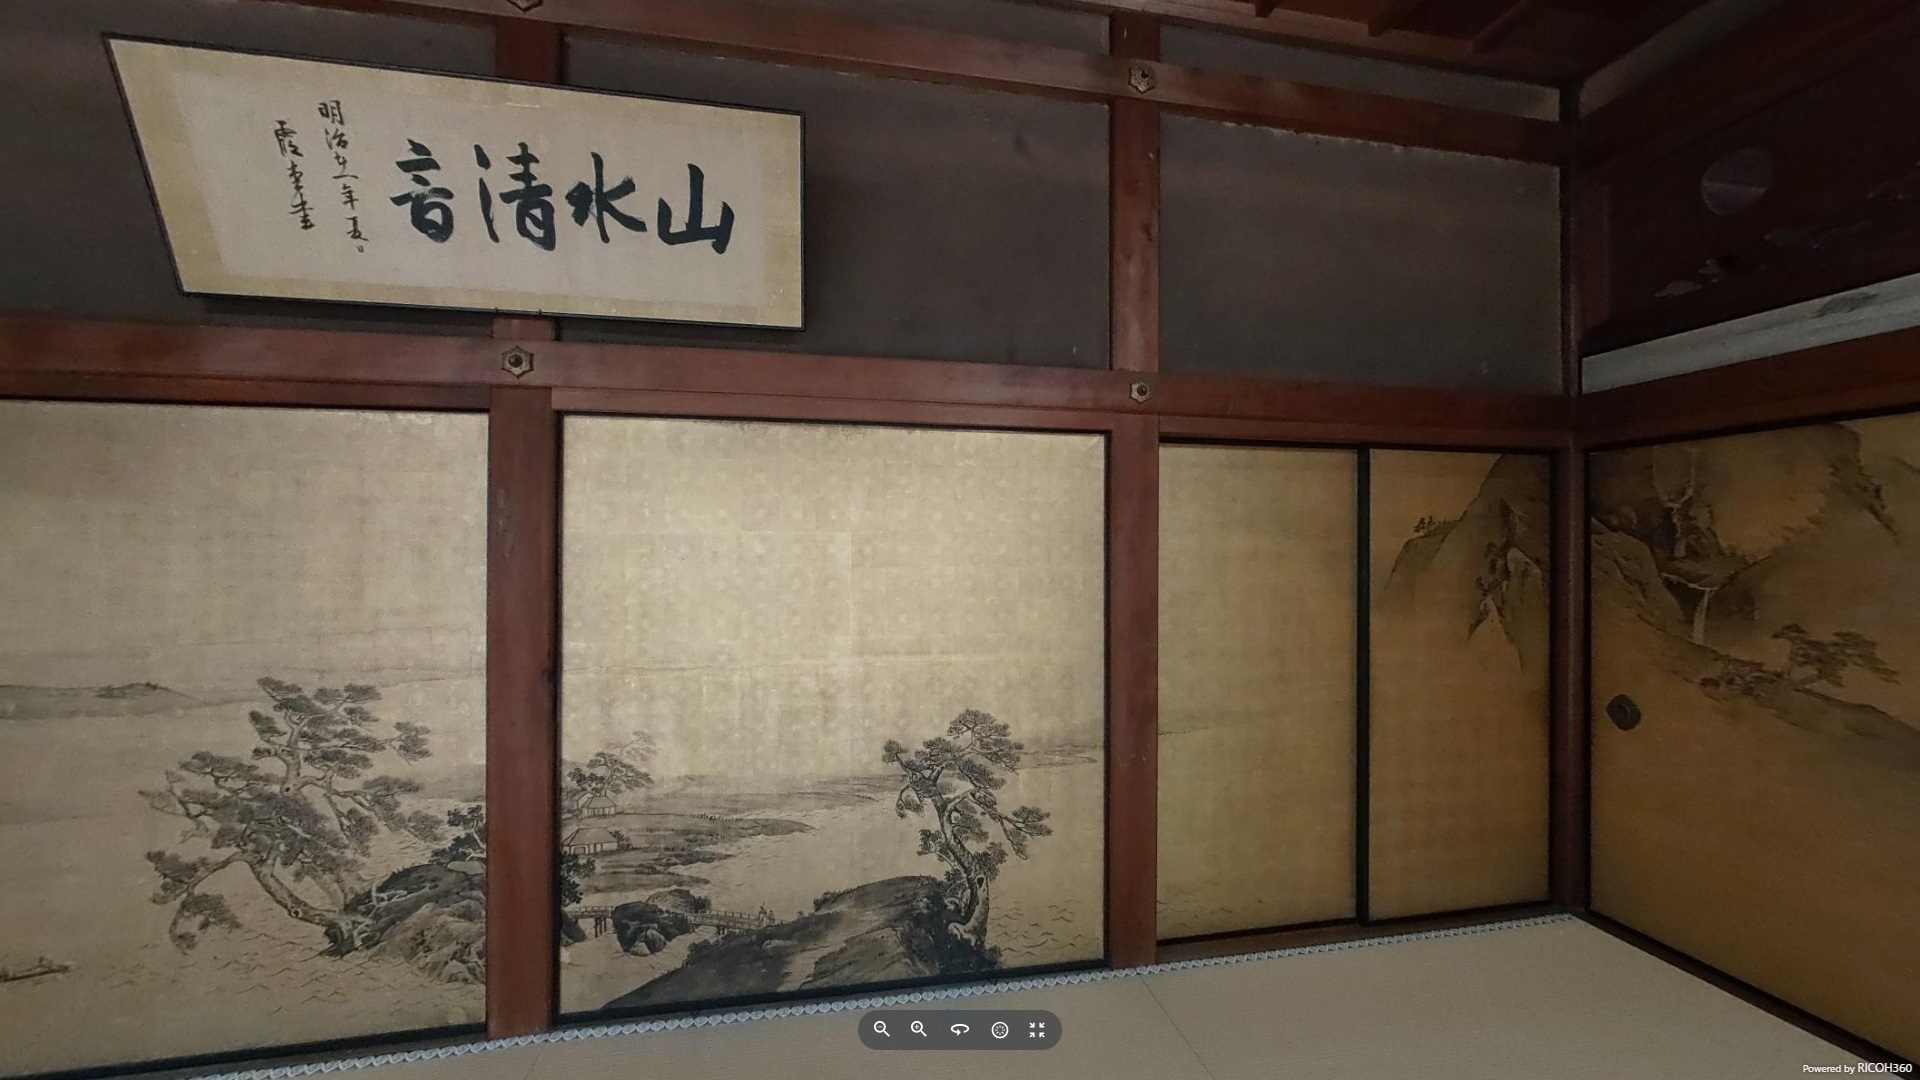 山水清音
明治廿一年夏日
霞堂書
Powered by RICOH360